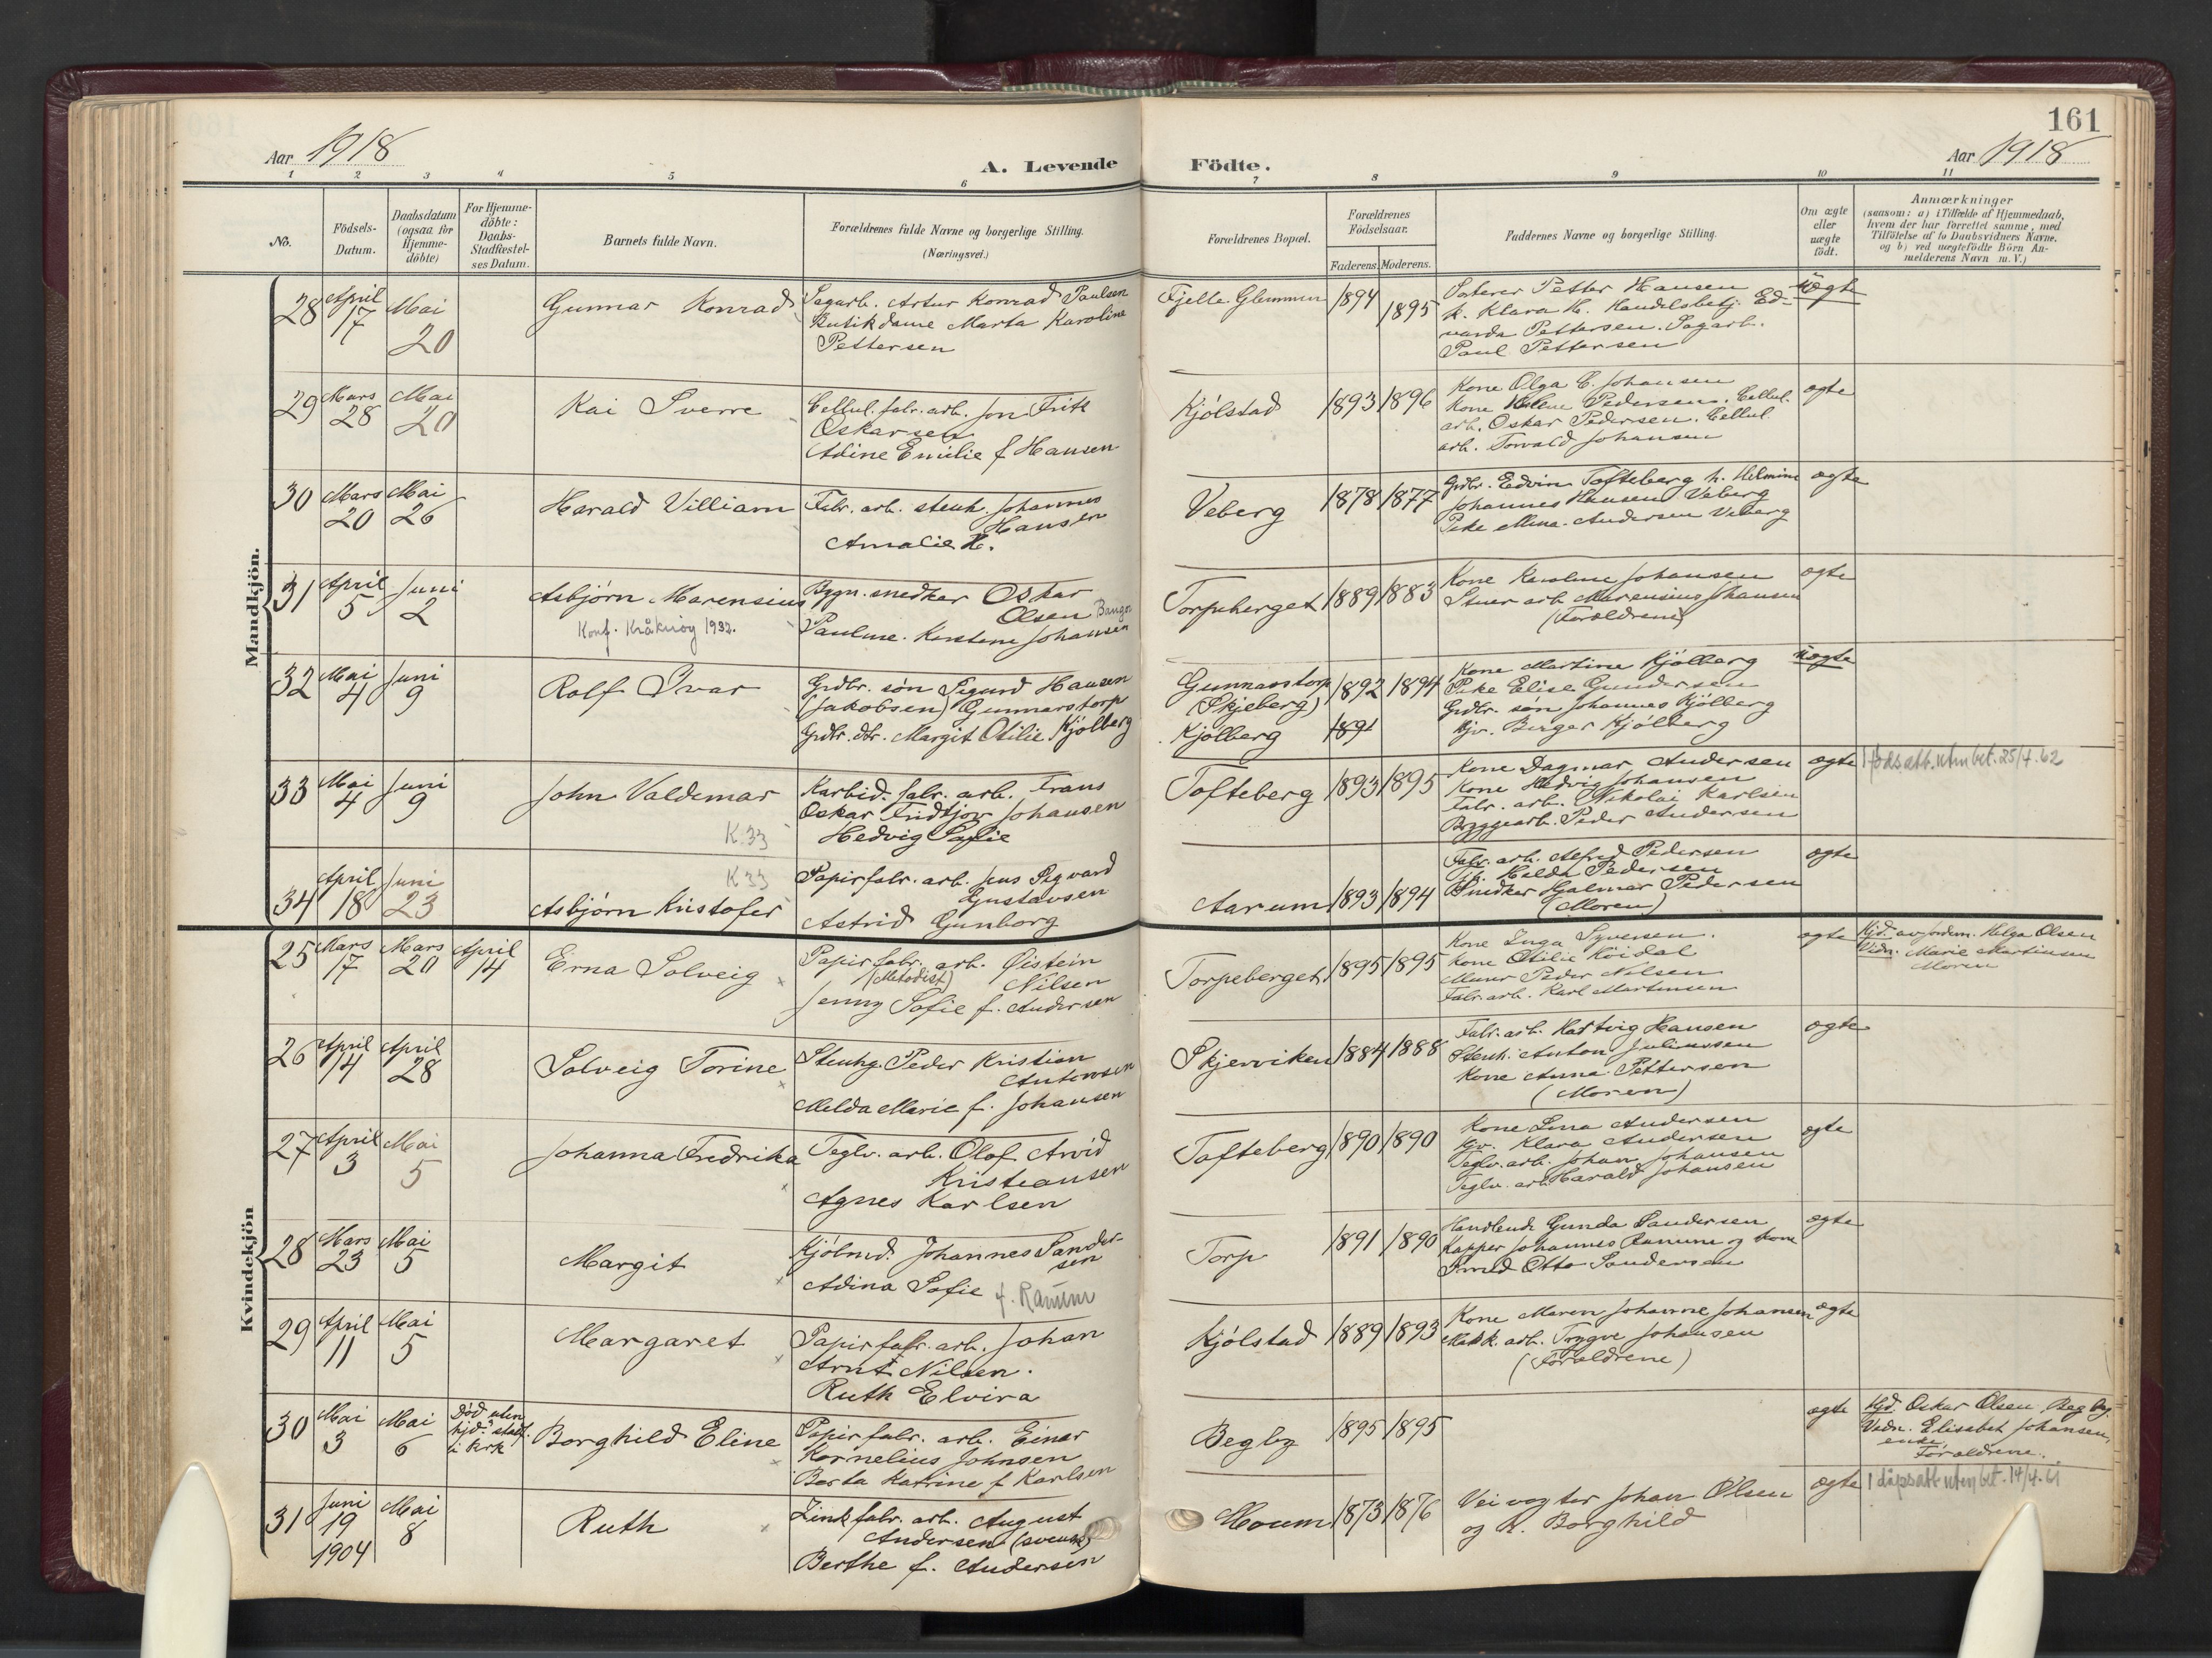 161
Aar 1918
A. Levende Födte.
Aar 1918
1 2 3 4 5 6 7 8 9 10 11
No.
Födsels-
Datum.
Daabsdatum
(ogsaa for
Hjemme-
döbte)
For Hjemme-
döbte:
Daabs-
Stadfæstel-
ses Datum.
Barnets fulde Navn.
Forældrenes fulde Navne og borgerlige Stilling.
(Næringsvei.)
Forældrenes Bopæl.
Forældrenes
Födselsaar.
Faderens. Moderens.
Faddernes Navne og borgerlige Stilling.
Om ægte
eller
uægte
födt.
Anmærkninger
(saasom: a) i Tilfælde af Hjemmedaab,
hvem der har forrettet samme, med
Tilföielse af to Daabsvidners Navne.
og b) ved uægtefödte Börn An-
melderens Navn m. V.)
Mandkjön.
28 April 17 Mai 20 Gunnar Konrad
Sagarb. Artur Konrad Paulsen
Butikdame Marta Karoline
Pettersen
Fjelle Glemmen 1894 1895
Sorterer Petter Hansen
k. Klara H. Handelsbetj. Ed-
varda Pettersen. Sagarb.
Paul Pettersen
uægte
29 Mars 28 Mai 20 Kai Sverre
Cellul. fabr. arb. Jon Fritz
Oskarsen
Adine Emilie f Hansen
Kjölstad 1893 1896
Kone Olga C. Johansen
Kone Pedersen. Cellul.
arb. Oskar Pedersen. Cellul.
arb. Torvald Johansen
ægte
30 Mars 20 Mai 26 Harald Villiam
Fabr. arb. stenh. Johannes
Hansen
Amalie H.
Veberg 1878 1877
Grdbr. Edvin Tofteberg h. Helmine
Johannes Hansen Veberg
Pike Mina Andersen Veberg
ægte
31 April 5 Juni 2 Asbjörn Marensius
Konf. Kråkerøy 1932.
Bygn. snedker Oskar
Olsen
Pauline Kirstine Johansen
Torpeberget 1889 1883
Kone Karoline Johansen
Stuer arb. Marensius Johansen
(Forældrene)
ægte
32 Mai 4 Juni 9 Rolf Ivar
Grdbr. sön Sigurd Hansen
(Jakobsen) Gunnarstorp
Grdbr. dtr. Margit Otilie Kjölberg
Gunnarstorp
(Skjeberg)
Kjölberg
1892 1894
1891
Kone Martine Kjölberg
Pike Elise Gundersen
Grdbr. sön Johannes Kjölberg
Gjv. Birger Kjölberg
uægte
33 Mai 4 Juni 9 John Valdemar
K. 33
Karbid. fabr. arb. Frans
Oskar Fridtjov Johansen
Hedvig Sofie
Tofteberg 1893 1895
Kone Dagmar Andersen
Kone Hedvig Johansen
Fabr. arb. Nikolai Karlsen
Bryggearb. Peder Andersen
ægte
1 föds.att. utm bet. 25/4.62
34 April 18 Juni 23 Asbjörn Kristofer
K 33
Papirfabr. arb. Jens Sigvard
Gustavsen
Astrid Gunborg
Aarum 1893 1894
Fabr. arb. Alfred Pedersen
Pedersen
Snedker Hjalmar Pedersen
(Moren)
ægte
Kvindekjön
25 Mars 17 Mars 20 April 14 Erna Solveig
Papirfabr. arb. Öistein
(Metodist) Nilsen
Jenny Sofie f. Andersen
Torpeberget 1895 1895
Kone Inga Syversen.
Kone Otilie Köidal
Murer Peder Nilsen
Fabr. arb. Karl Martinsen
ægte
Hjd. av jordem. Helga Olsen
Vidn. Marie Martinsen
Moren
26 April 14 April 28 Solveig Torine
Stenhg. Peder Kristian
Antonsen
Milda Marie f. Johansen
Skjærviken 1884 1888
Fabr. arb. Hartvig Hansen
Stenh. Anton Juliussen
Kone Anna Pettersen
(Moren)
ægte
27 April 3 Mai 5 Johanna Fredrika
Teglv. arb. Olof Arvid
Kristiansen
Agnes Karlsen
Tofteberg 1890 1890
Kone Lina Andersen
Gjv. Klara Andersen
Teglv. arb. Johan Johansen
Teglv. arb. Harald Johansen
ægte
28 Mars 23 Mai 5 Margit
Kjöbmd. Johannes Sander-
sen
Adina Sofie f. Ramm
Torp 1891 1890
Handlende Gunda Sandersen
Johannes og kone
Smed Otto Sandersen
ægte
29 April 11 Mai 5 Margaret
Papirfabr. arb. Johan
Arnt Nilsen.
Ruth Elvira
Kjölstad 1889 1893
Kone Maren Johanne Johansen
Mekk. arb. Trygve Johansen
(Forældrene)
ægte
30 Mai 3 Mai 6
Död uten
hjd. stadf.
i kirk
Borghild Eline
Papirfabr. arb. Einar
Kornelius Johnsen
Berta Katrine f Karlsen
Begby 1895 1895
ægte
Hjd. Oskar Olsen, Begby.
Vidn. Elisabet Johansen,
enke.
Forældrene.
31 Juni 19 1904 Mai 8 Ruth
Zinkfabr. arb. August
Andersen (svensk)
Berthe f. Andersen
Moum 1873 1876
Veivogter Johan Olsen
og k. Borghild
ægte
1 dåpsatt uten bet. 14/4.61